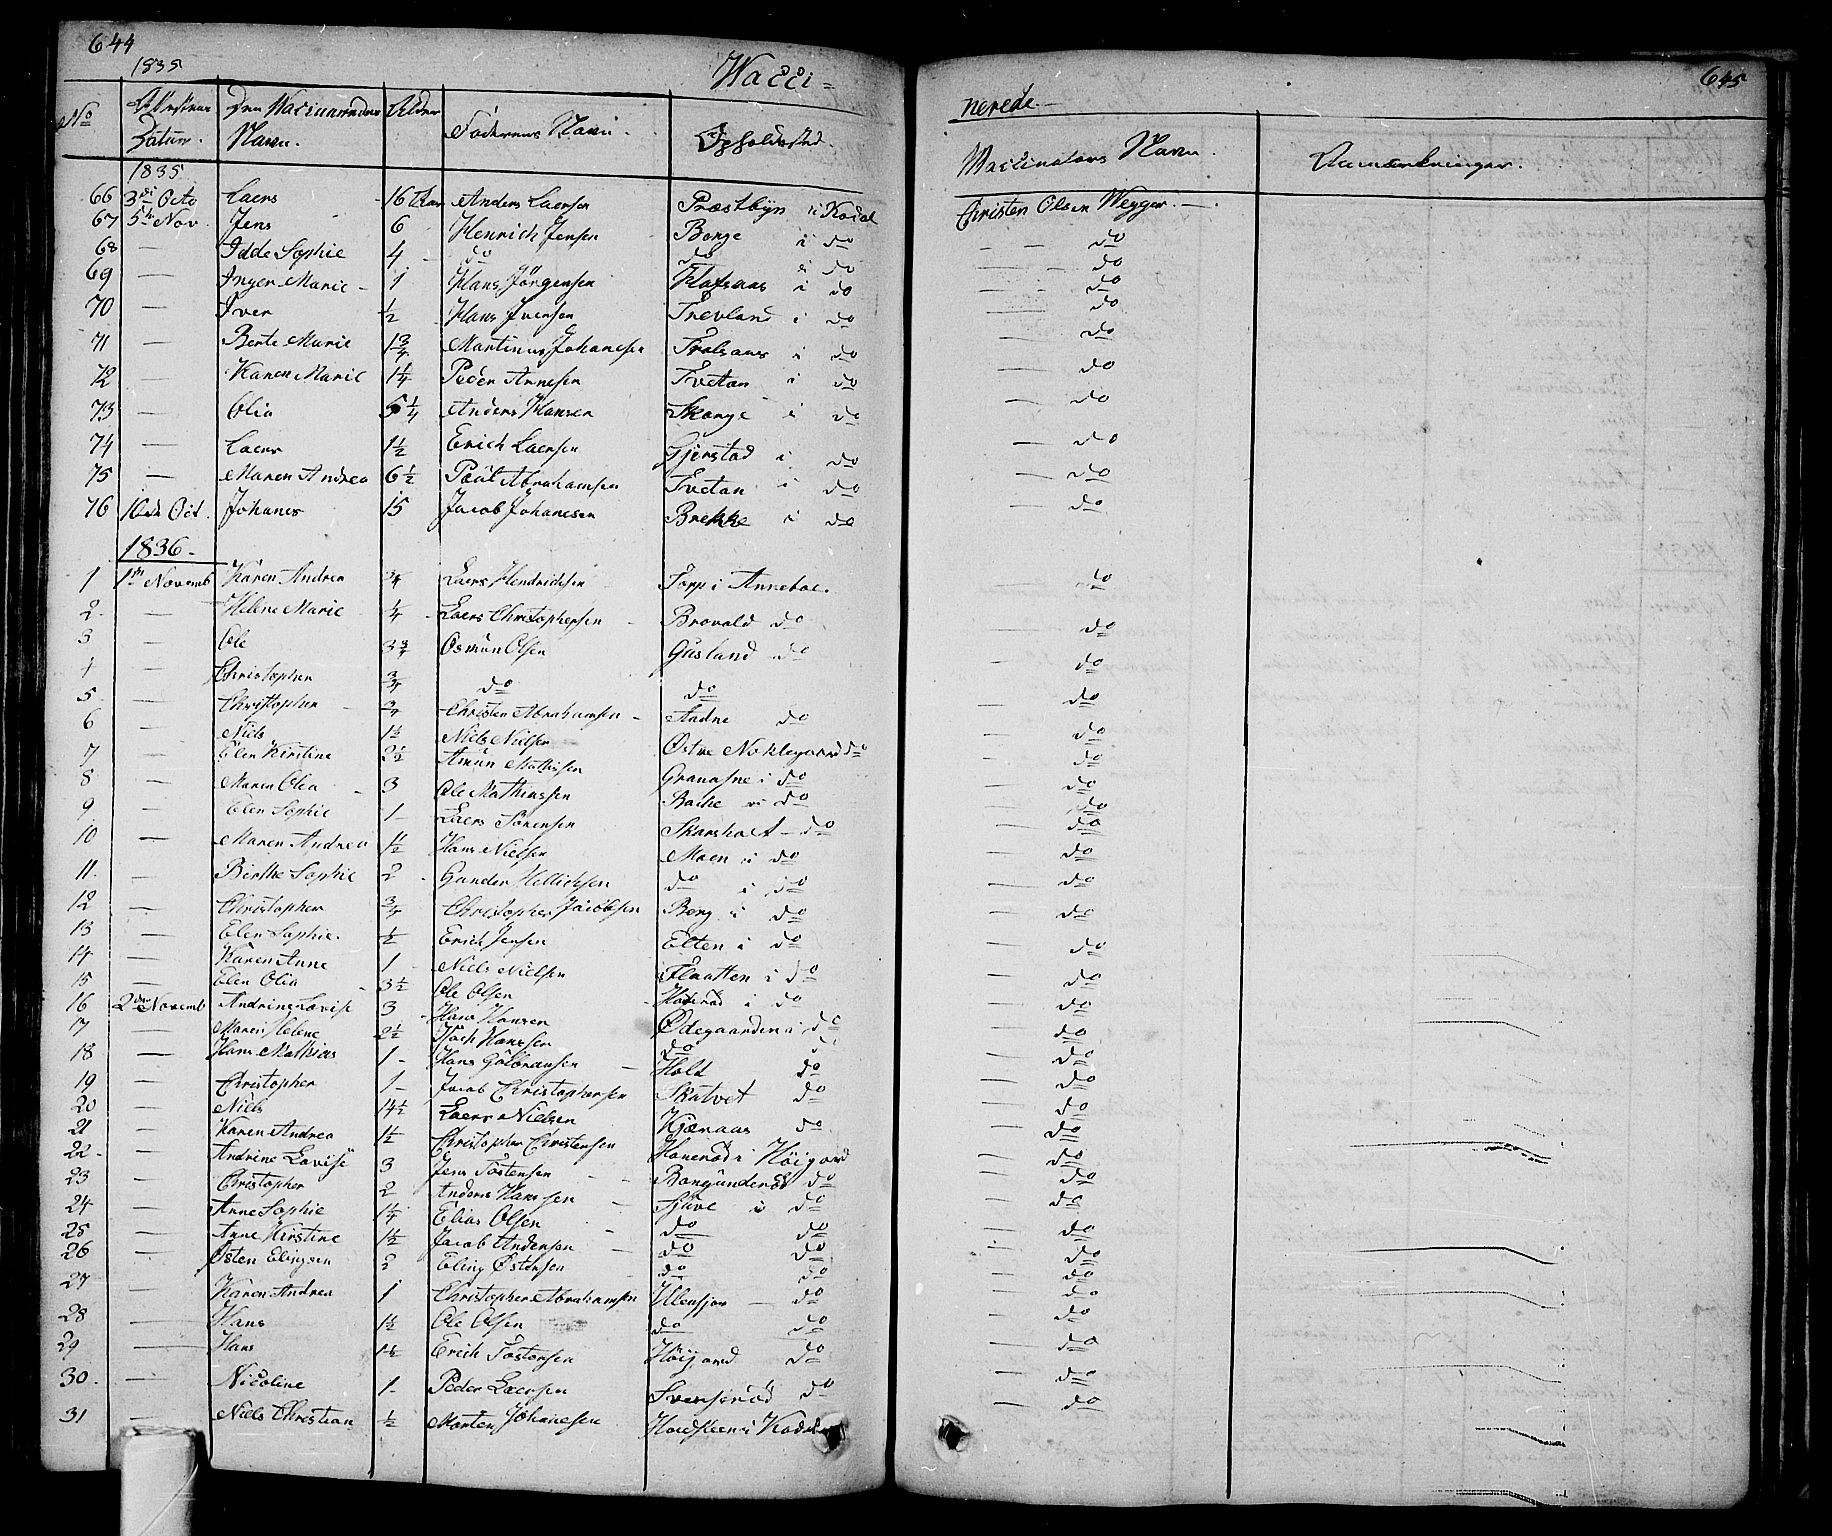 644
1835
Wacci-
No | Attestens Datum. | Den Waccinerendes Navn. | Alder | Faderens Navn. | Opholdssted.
1835
66 3di Octo Laers 16 Aar Anders Laersen Præstbyn i Kodal
67 5te Nov. Jens 6 Henrich Jensen Borge i do
68 — Idde Sophie 4 do do i do
69 — Inger Marie 1 Hans Jörgensen i do
70 — Iver 1/2 Hans Iversen Trevland i do
71 — Berte Marie 1 3/4 Martinus Johanesen i do
72 — Karen Marie 1 1/4 Peder Annesen Tvetan i do
73 — Olia 5 1/4 Anders Hansen Skorge i do
74 — Laers 1 1/2 Erich Laersen Gjerstad i do
75 — Maren Andrea 6 1/2 Paul Abrahamsen Tvetan i do
76 16de Oct. Johanes 15 Jacob Johanesen Brekke i do
1836
1 1ste Novemb Karen Andrea 3/4 Laers Hendrichsen Torp i Anneboe.
2 — Helene Marie 1/4 Laers Christophersen Brovald do
3 — Ole 3 3/4 Osmun Olsen Gusland do
4 — Christopher 3/4 do do
5 — Christopher 3/4 Christen Abrahamsen Aadne do
6 — Niels 1 1/2 Niels Nielsen Östre Noklegaard do
7 — Elen Kirstine 2 1/2 Amun Mathisen Granasne i do
8 — Maren Olea 3 Ole Mathiassen Backe i do
9 — Elen Sophie 1 Laers Sörensen Skarsholt do
10 — Maren Andrea 1 1/2 Hans Nielsen Moen i do
11. — Birthe Sophie 2 Gunder Hellichsen do i do
12 — Christopher 3/4 Christopher Jacobsen Berg i do
13 — Elen Sophie. 1/2 Erich Jensen Elten i do
14 — Karen Anne 1 Niels Nielsen Flaatten i do
15 — Elen Olia 3 1/2 Ole Olsen i do
16 2den Novemb Andrine Lovise 3 Hans Hansen Ødegaarden i do
17 — Maren Helene 2 1/2 Hanssen do do
18 — Hans Mathias 1 Hans Gulbransen Hold do
19 — Christopher 1 Jacob Christophersen Skatvet do
20 — Niels 14 1/2 Laers Nielsen Kjæraas do
21 — Karen Andrea 1 1/2 Christopher Christensen Hanerød i Höigord
22 — Andrine Lovise 3 Jens Tostensen Bongunderød do
23 — Christopher 2 Anders Hanssen Sjüve i do
24 — Anne Sophie 1 1/4 Elias Olsen do do
25 — Anne Kirstine 1 1/2 Jacob Andersen do do
26 — Østen Elingsen 2 Eling Østensen do do
27 — Karen Andrea 1 Christopher Abrahamsen Ullensjor do
28 — Hans 1 1/2 Ole Olsen do do
29 — Hans Erich Tostensen Höijord do
30. — Nicoline 1 Peder Laersen Svensrød do
31 — Niels Christian 1/2 Morten Johanesen i Kodal
645
nerede.
Waccinators Navn. | Anmærkninger.
Christen Olsen Wegger.
— do
— do
— do
— do
— do
— do
— do
— do
— do
— do
— do
— do
— do
— do
— do
— do
— do
— do
— do
— do
— do
— do
— do
— do
— do
— do
— do
— do
— do
— do
— do
— do
— do
— do
— do
— do
— do
— do
— do
— do
— do